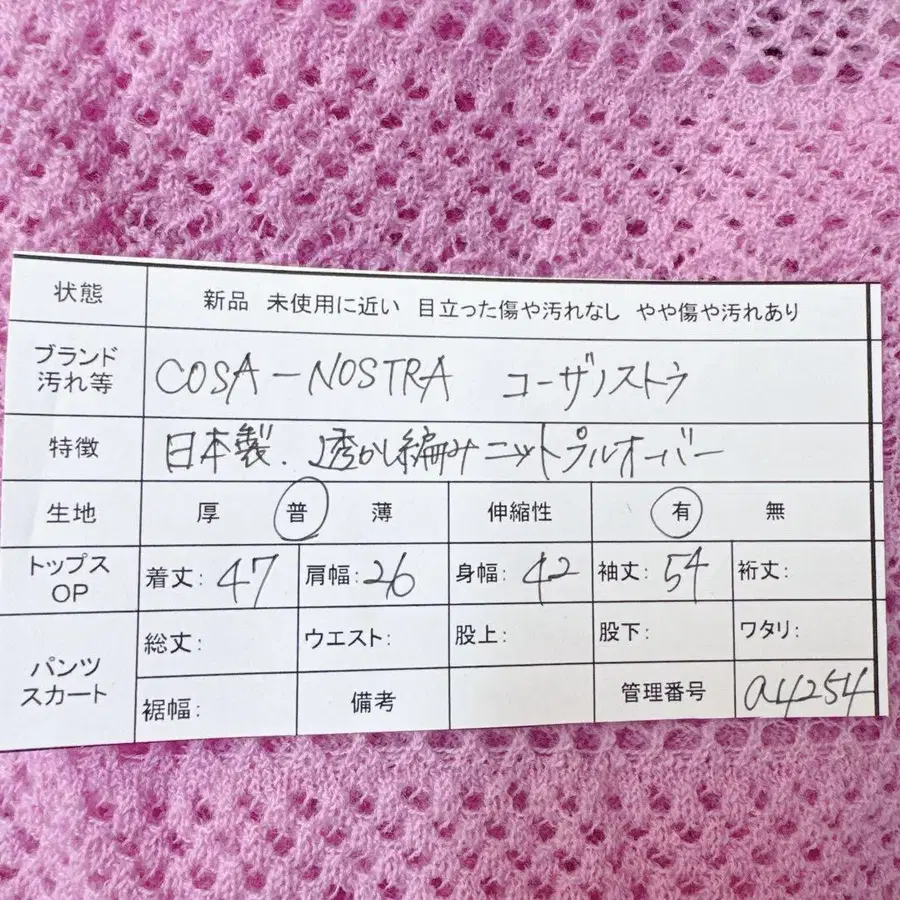 状態 新品 未使用に近い 目立った傷や汚れなし やや傷や汚れあり
ブランド
汚れ等 COSA-NOSTRA コーザノストラ
特徴 日本製. 透かし編みニットプルオーバー
生地 厚 普 薄 伸縮性 有 無
トップス
OP 着丈: 47 肩幅: 26 身幅: 42 袖丈: 54 裄丈:
パンツ
スカート 総丈: ウエスト: 股上: 股下: ワタリ:
裾幅: 備考 管理番号 a4254